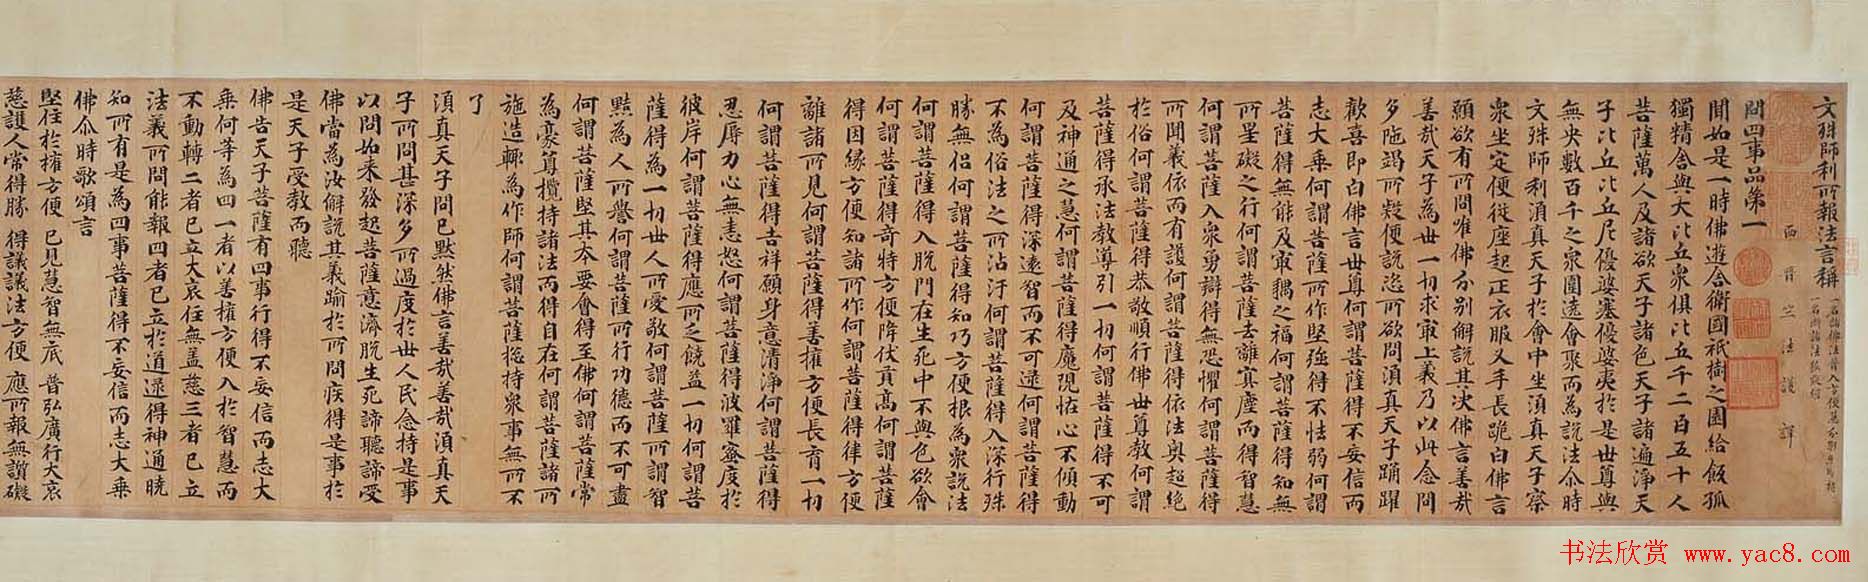 文殊師利所報法言稱
西晉竺法護譯
問四事品第一
聞如是一時佛遊舍衛國祇樹之園給飯孤
獨精舍與大比丘衆俱比丘千二百五十人
菩薩萬人及諸欲天子諸色天子諸遍淨天
子比丘比丘尼優婆塞優婆夷於是世尊與
無央數百千之衆圍遶會聚而為說法尒時
文殊師利湏真天子於會中坐湏真天子察
衆坐定便從座起正衣服叉手長跪白佛言
願欲有所問唯佛分別解說其决佛言善㢤
善㢤天子為世一切求㝡上義乃以此念問
多陁竭所疑便說恣所欲問湏真天子踊躍
歡喜即白佛言世尊何謂菩薩得不妄信而
志大乗何謂菩薩所作堅強得不怯弱何謂
菩薩得無能及㝡耦之福何謂菩薩得知無
所罣礙之行何謂菩薩去離冥塵而得智慧
何謂菩薩入衆勇辯得無恐懼何謂菩薩得
所聞義依而有護何謂菩薩得依法奥超絶
於俗何謂菩薩得恭敬順行佛世尊教何謂
菩薩得承法教導引一切何謂菩薩得不可
及神通之慧何謂菩薩得魔現恠心不傾動
何謂菩薩得深遠智而不可逮何謂菩薩得
不為俗法之所沾汙何謂菩薩得入深行殊
勝無侶何謂菩薩得知巧方便根為衆說法
何謂菩薩得入脫門在生死中不與色欲會
何謂菩薩得奇特方便降伏貢高何謂菩薩
得因緣方便知諸所作何謂菩薩得律方便
離諸所見何謂菩薩得善權方便長育一切
何謂菩薩得吉祥願身意清淨何謂菩薩得
忍辱力心無恚怒何謂菩薩得波羅蜜度於
彼岸何謂菩薩得應所之饒益一切何謂菩
薩得為一切世人所愛敬何謂菩薩所謂智
黠為人所譽何謂菩薩所行功德而不可盡
何謂菩薩堅其本要會得至佛何謂菩薩常
為豪尊攬持諸法而得自在何謂菩薩諸所
施造輒為作師何謂菩薩揔持衆事無所不
了
湏真天子問已默然佛言善㢤善㢤湏真天
子所問甚深多所過度於世人民念持是事
以問如来發起菩薩意濟脫生死諦聽諦受
佛當為汝解說其義踰於所問疾得是事於
是天子受教而聽
佛告天子菩薩有四事行得不妄信而志大
乗何等為四一者以善權方便入於智慧而
不動轉二者已立大哀住無盖慈三者已立
法義所問能報四者已立於道逮得神通曉
知所有是為四事菩薩得不妄信而志大乗
佛尒時歌頌言
堅住於權方便　已見慧智無底　普弘廣行大哀
慈護人常得勝　得議議法方便　應所報無讃礙
书法欣赏 www.yac8.com